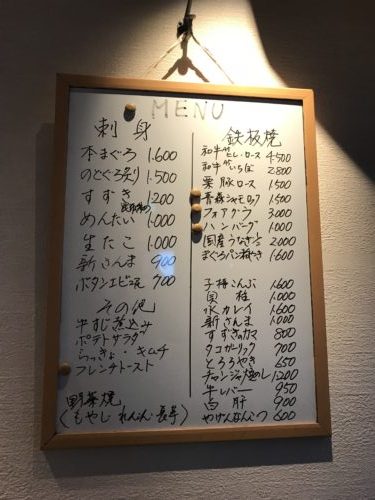 MENU
刺身
本まぐろ 1.600
のどぐろ炙り 1.500
すずき 1.200
めんたい 1.000
生たこ 1.000
新さんま 900
ボタンエビ 900
その他
牛すじ煮込み
ポテトサラダ
らっきょ・キムチ
フレンチトースト
野菜焼
(もやし れんこん 長芋)
鉄板焼
和牛ヒレ・ロース 4.500
和牛いちぼ 2.800
栗豚ロース 1.500
青森シャモロック 1.500
フォアグラ 3.000
ハンバーグ 1.000
国産うなぎ 2.000
まぐろパン粉やき 1.600
子持こんぶ 1.600
貝柱 1.000
水カレイ 1.600
新さんま 1.000
すずきのカマ 800
タコガーリック 700
とろろやき 650
チャンジャ焼めし 1200
牛レバー 950
白肝 900
やげんなんこつ 600